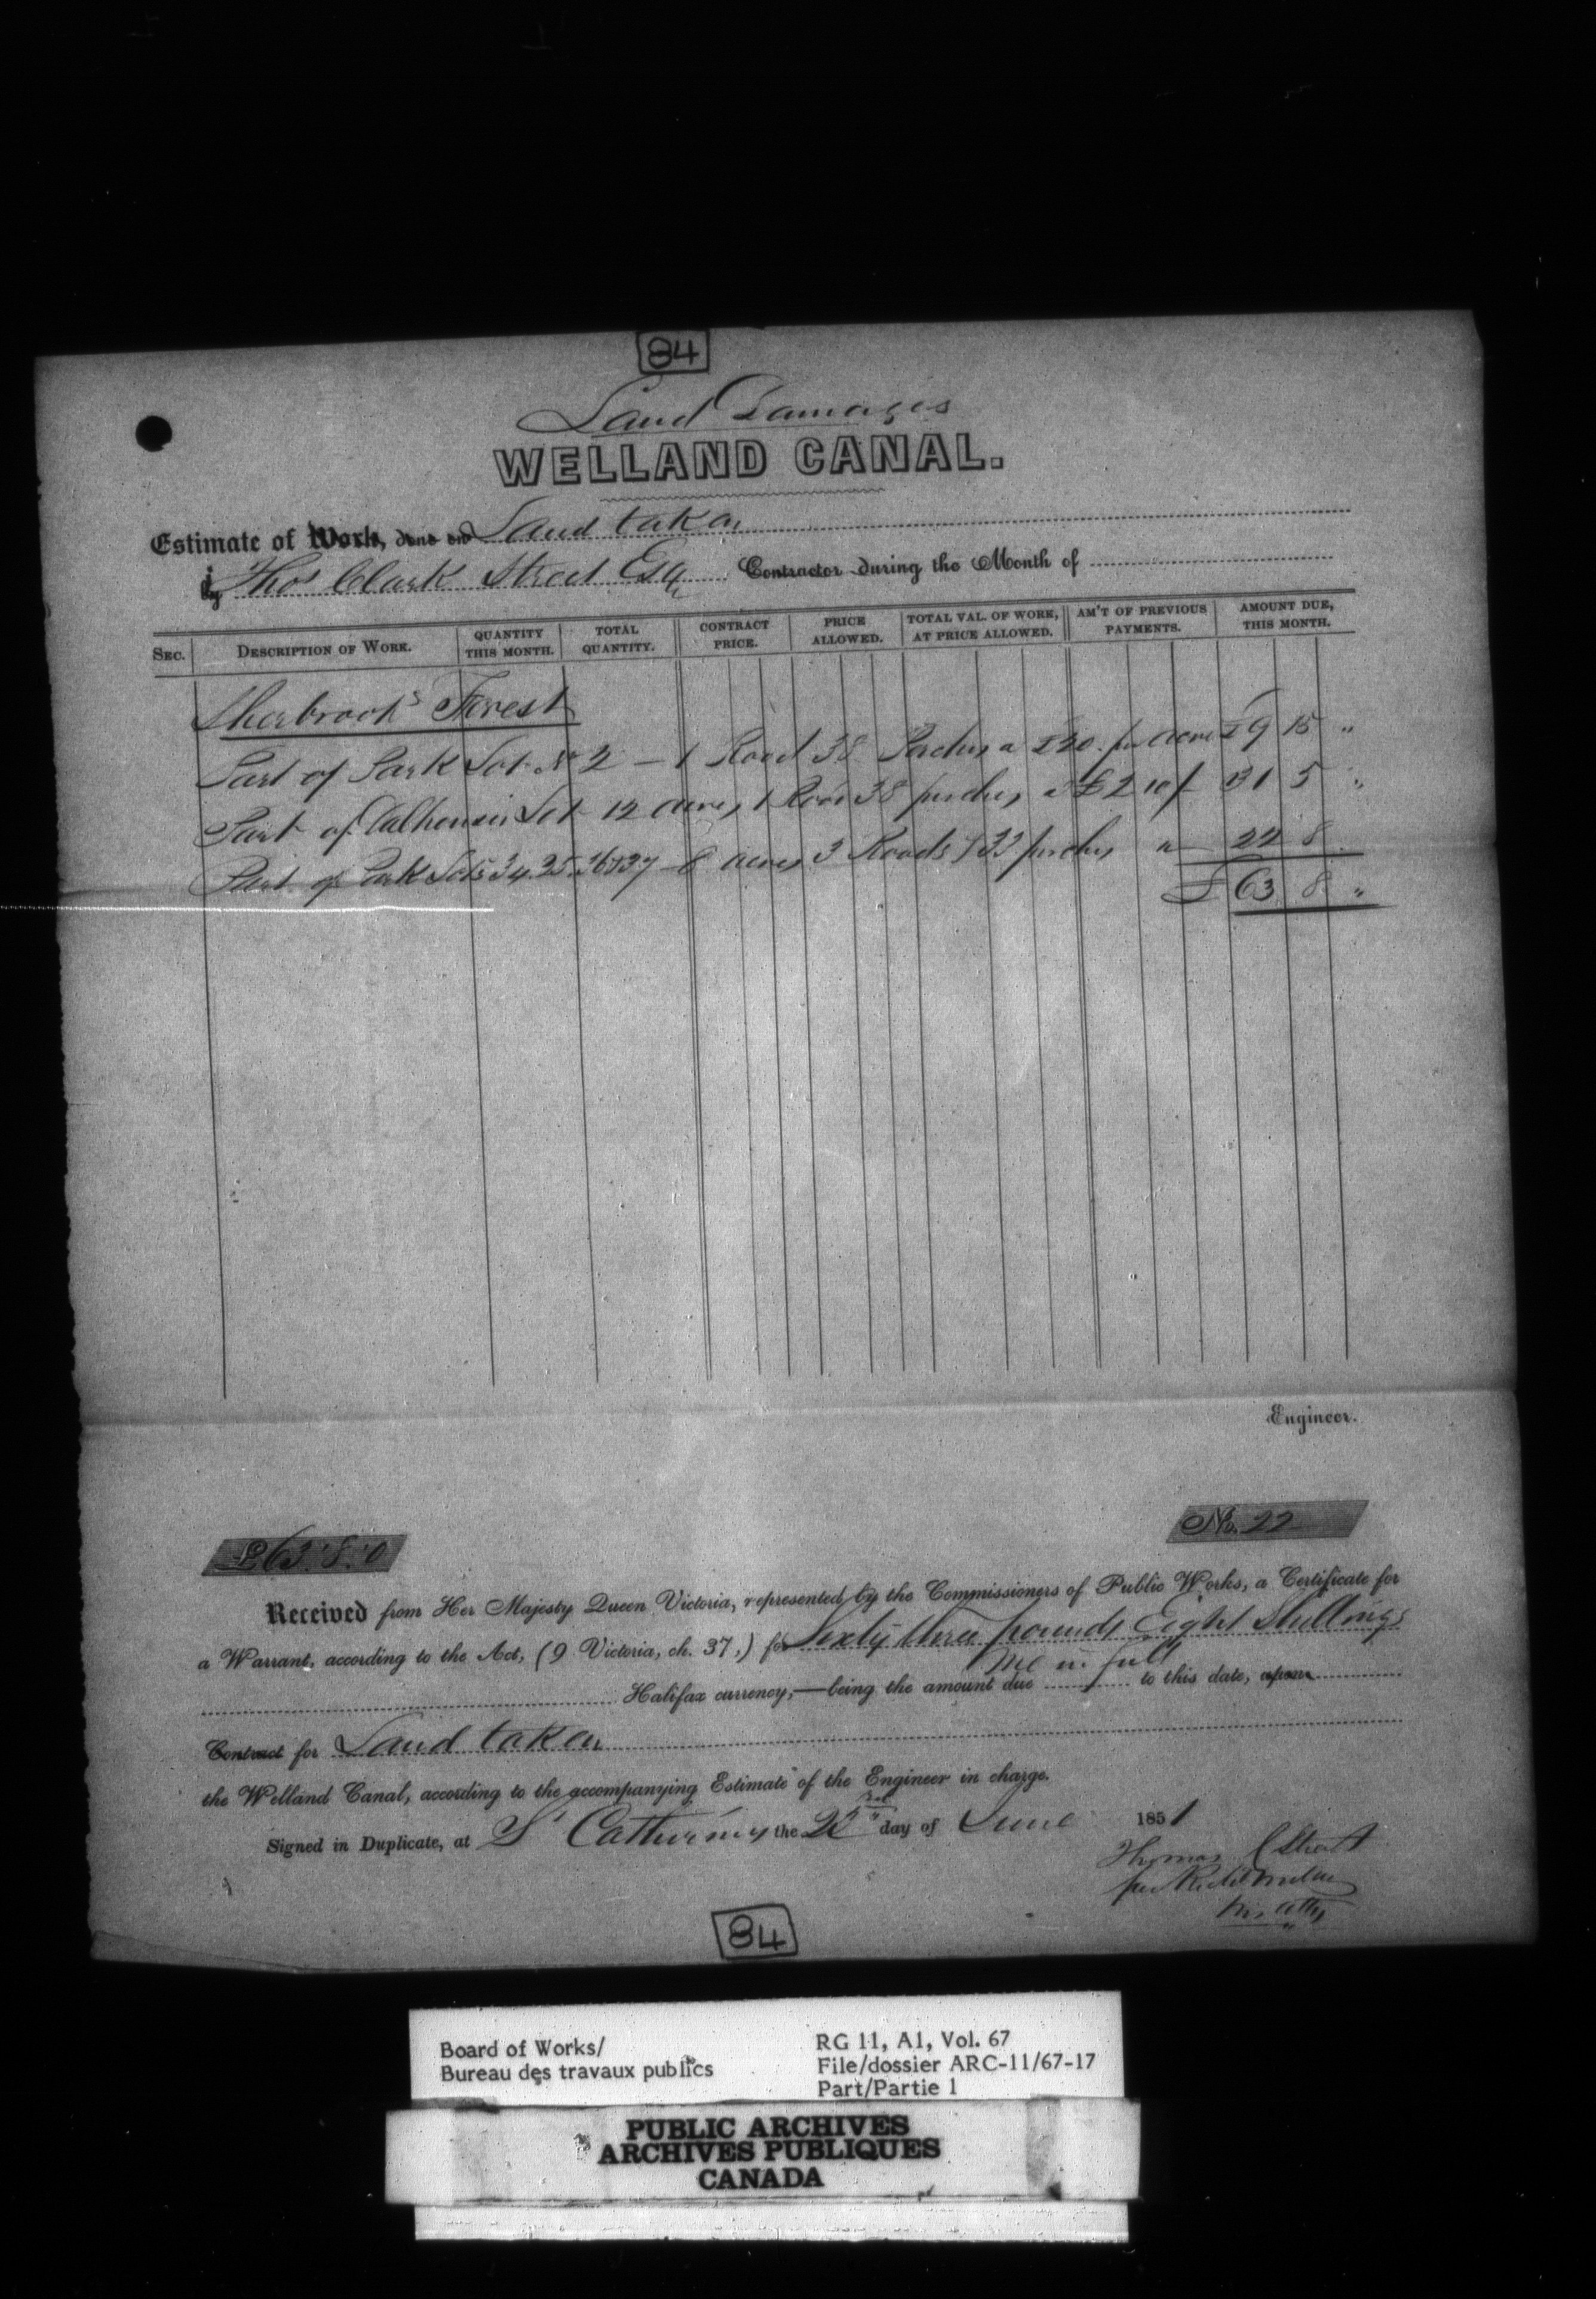 84
Land Damages
WELLAND CANAL.
Estimate of Work, done on Land taken
by Thos Clark Street Esq Contractor during the Month of
SEC. DESCRIPTION OF WORK. QUANTITY THIS MONTH. TOTAL QUANTITY. CONTRACT PRICE. PRICE ALLOWED. TOTAL VAL. OF WORK, AT PRICE ALLOWED. AM'T OF PREVIOUS PAYMENTS. AMOUNT DUE, THIS MONTH.
Sherbrook's Forest
Part of Park Lot No 2 — 1 Rood 38 Perches a £20 per acre £9 15 "
Part of Lot 12 acres 1 Rood 38 perches a £2 10/ 31 5 "
Part of Park Lots 34. 35. 36 & 37 – 8 acres 3 Roods & 33 perches a 22 8
£ 63 8 "
Engineer.
£63.8.0 No. 22
Received from Her Majesty Queen Victoria, represented by the Commissioners of Public Works, a Certificate for
a Warrant, according to the Act, (9 Victoria, ch. 37,) for Sixty three pounds Eight Shillings
Halifax currency,—being the amount due me in full to this date, upon
Contract for Land taken
the Welland Canal, according to the accompanying Estimate of the Engineer in charge.
Signed in Duplicate, at St Catherines the day of June 1851
Thomas C Street
per
his atty
84
Board of Works/ RG 11, A1, Vol. 67
Bureau des travaux publics File/dossier ARC-11/67-17
Part/Partie 1
PUBLIC ARCHIVES
ARCHIVES PUBLIQUES
CANADA